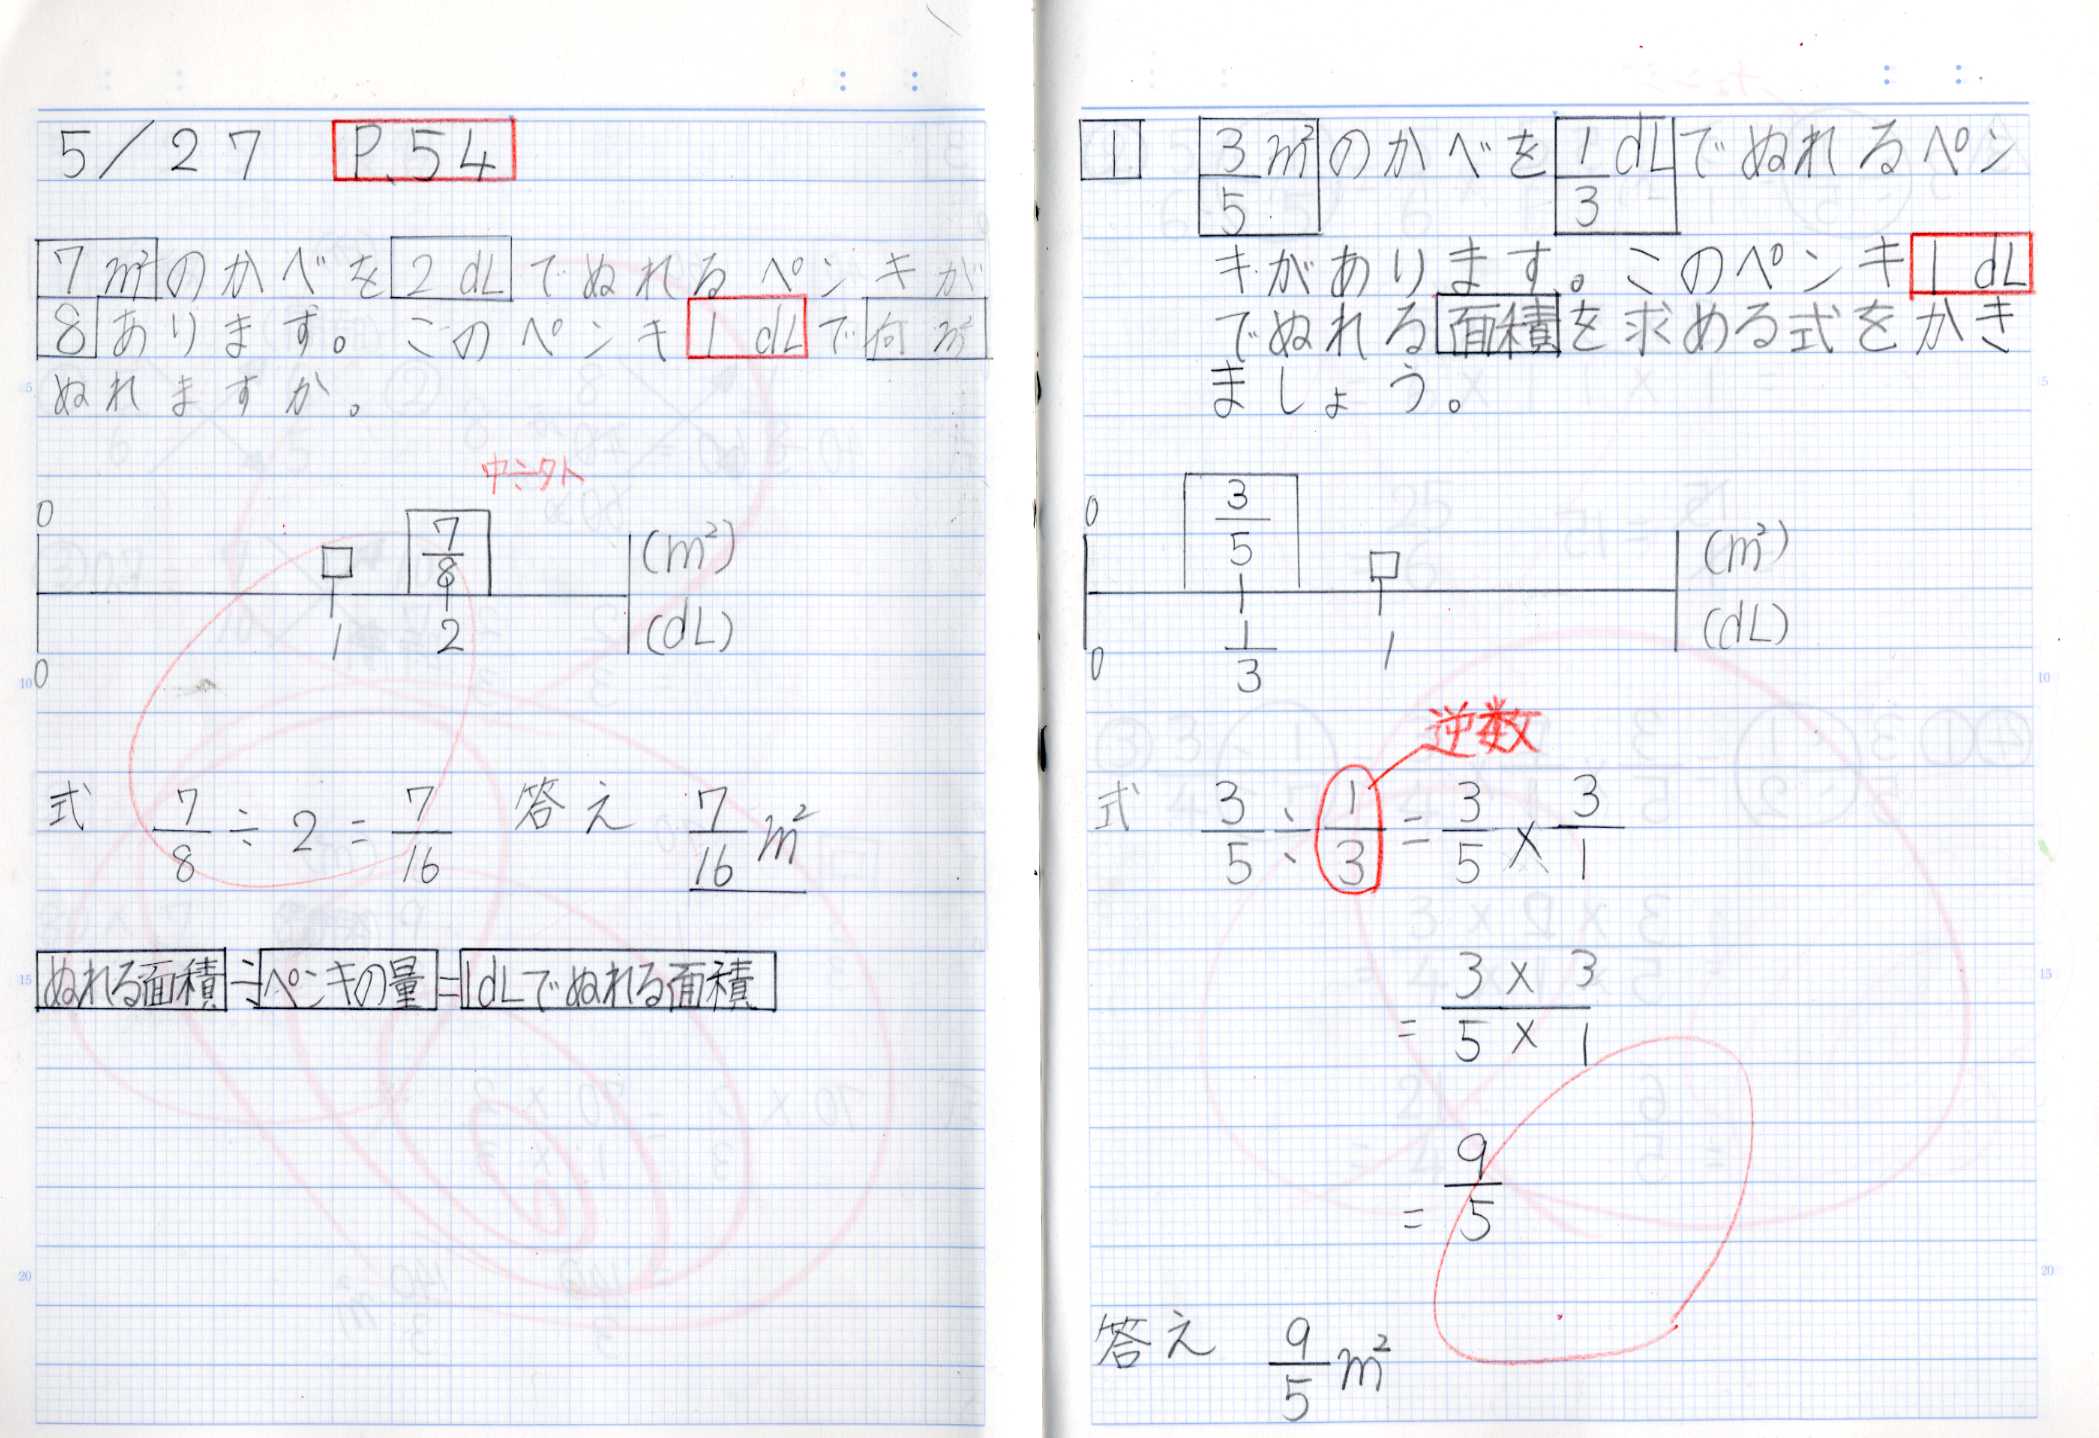 5/27 P.54
7/8 m²のかべを2dLでぬれるペンキが
あります。このペンキ1dLで何m²
ぬれますか。
中÷外
0 □ 7/8 (m²)
0 1 2 (dL)
式 7/8 ÷ 2 = 7/16 答え 7/16 m²
ぬれる面積÷ペンキの量=1dLでぬれる面積
1 3/5 m²のかべを1/3 dLでぬれるペン
キがあります。このペンキ1dL
でぬれる面積を求める式をかき
ましょう。
0 3/5 □ (m²)
0 1/3 1 (dL)
逆数
式 3/5 ÷ 1/3 = 3/5 × 3/1
= 3×3/5×1
= 9/5
答え 9/5 m²